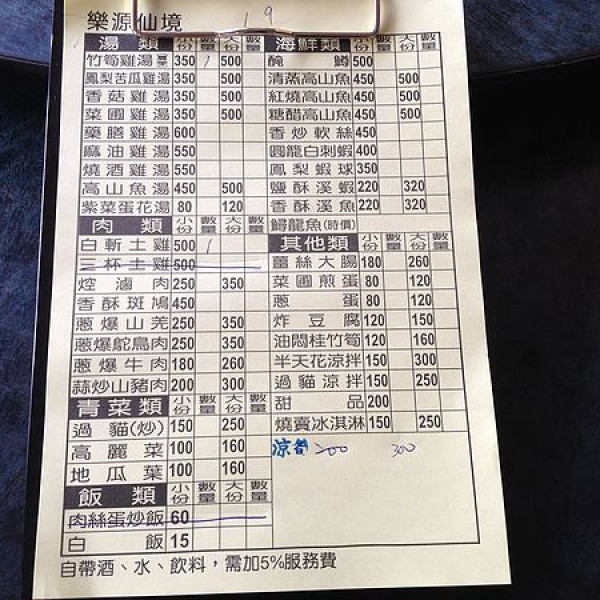 樂源仙境
19
湯類 小份 數量 大份 數量
竹筍雞湯 350 1 500
鳳梨苦瓜雞湯 350 500
香菇雞湯 350 500
菜圃雞湯 350 500
藥膳雞湯 600
麻油雞湯 550
燒酒雞湯 550
高山魚湯 450 500
紫菜蛋花湯 80 120
肉類 小份 數量 大份 數量
白斬土雞 500 1
三杯土雞 500
焢滷肉 250 350
香酥斑鳩 450
蔥爆山羌 250 350
蔥爆鴕鳥肉 250 350
蔥爆牛肉 180 260
蒜炒山豬肉 200 300
青菜類 小份 數量 大份 數量
過貓(炒) 150 250
高麗菜 100 160
地瓜葉 100 160
飯類 小份 數量 大份 數量
肉絲蛋炒飯 60
白飯 15
海鮮類 小份 數量 大份 數量
醃鱘 500
清蒸高山魚 450 500
紅燒高山魚 450 500
糖醋高山魚 450 500
香炒軟絲 450
圓龍白刺蝦 400
鳳梨蝦球 350
鹽酥溪蝦 220 320
香酥溪魚 220 320
鱘龍魚(時價)
其他類 小份 數量 大份 數量
薑絲大腸 180 260
菜圃煎蛋 80 120
蔥蛋 80 120
炸豆腐 120 150
油悶桂竹筍 120 160
半天花涼拌 150 300
過貓涼拌 150 250
甜品 200
燒賣冰淇淋 150 250
涼筍 200 300
自帶酒、水、飲料，需加5%服務費